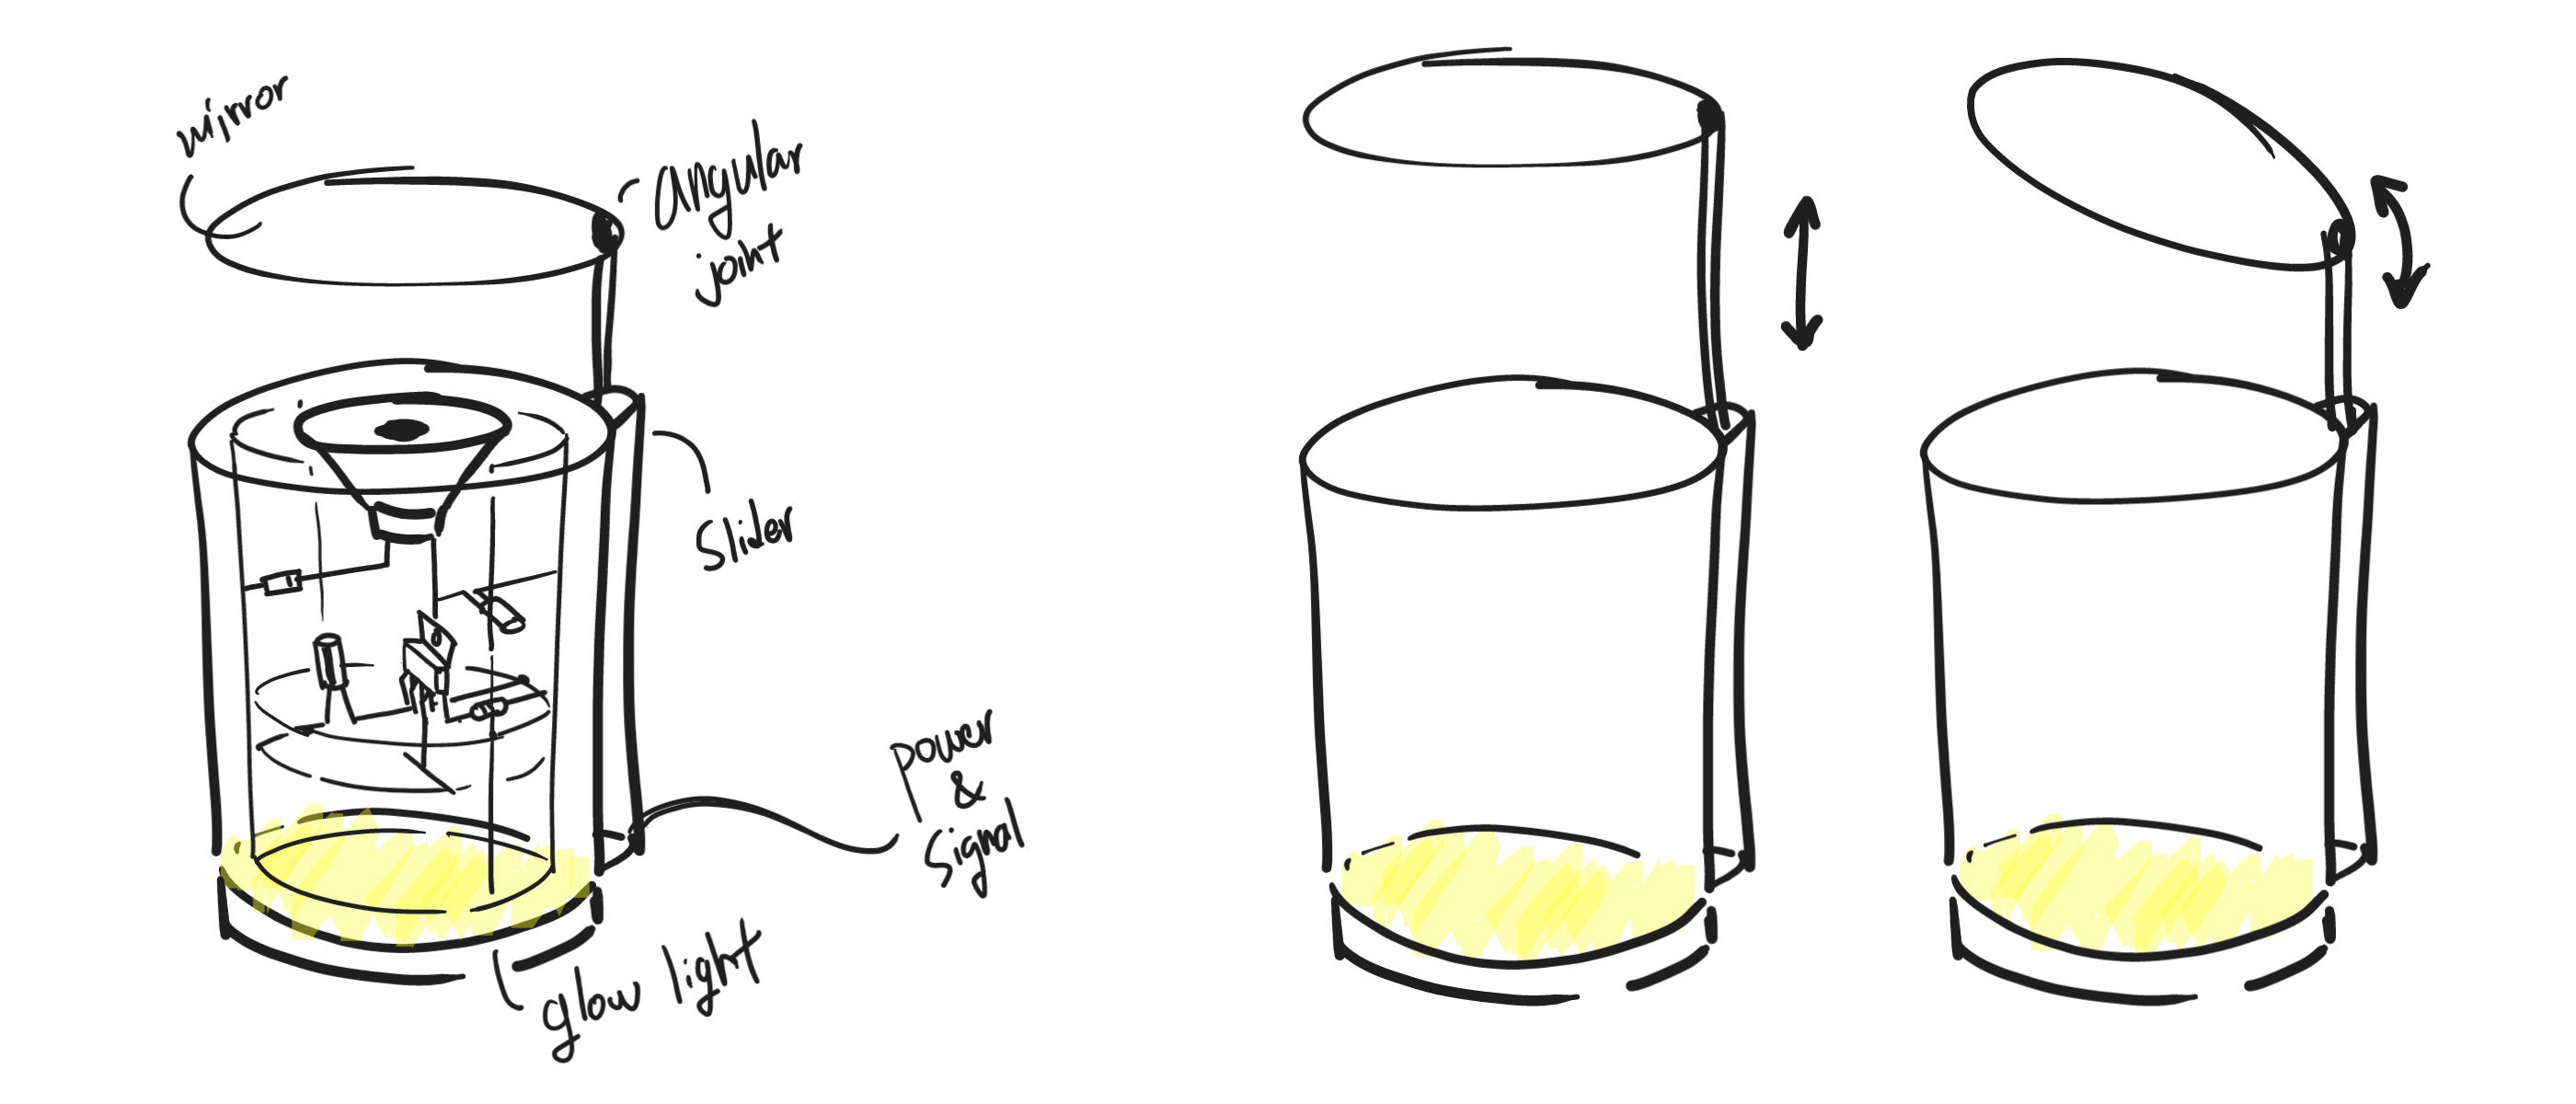 mirror
angular
joint
Slider
power
&
Signal
glow light